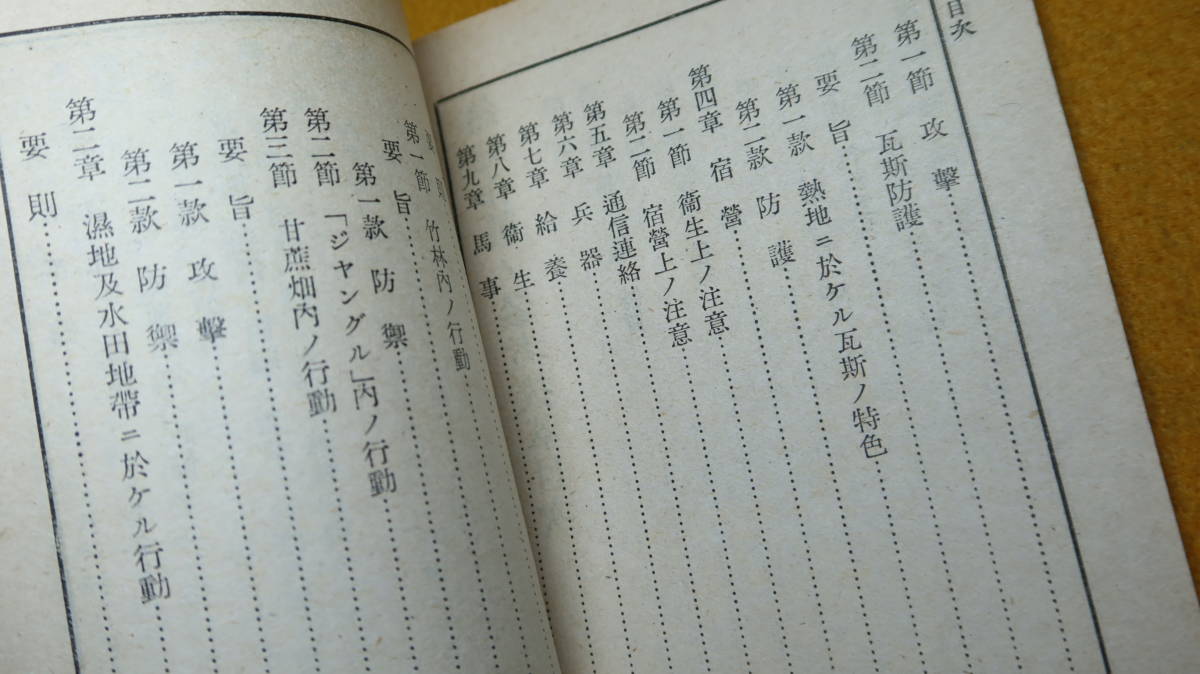 目次
第一節 攻擊
第二節 瓦斯防護
要旨
第一款 熱地ニ於ケル瓦斯ノ特色
第二款 防護
第四章 宿營
第一節 衞生上ノ注意
第二節 宿營上ノ注意
第五章 通信連絡
第六章 兵器
第七章 給養
第八章 衞生
第九章 馬事
則
第一節 竹林內ノ行動
要旨
第一款 防禦
第二節 「ジヤングル」內ノ行動
第三節 甘蔗畑內ノ行動
要旨
第一款 攻擊
第二款 防禦
第二章 濕地及水田地帶ニ於ケル行動
要則